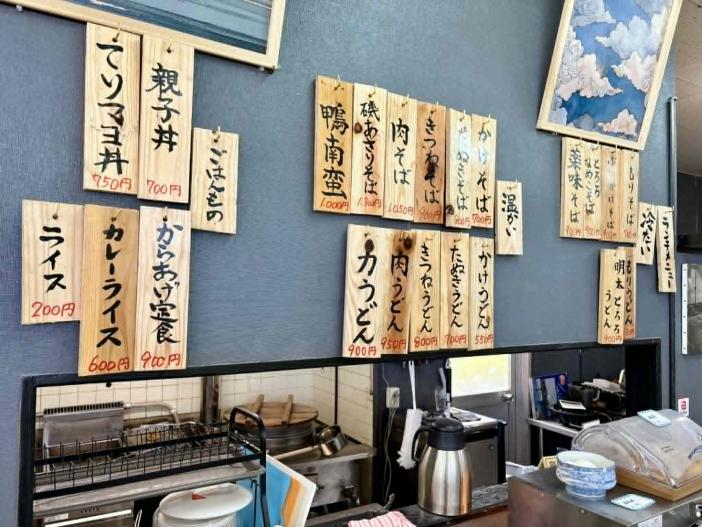 ランチメニュー
冷たい
もりそば
とろろ
なめこそば
薬味そば
もりうどん
明太とろろ
うどん
900円
温かい
かけそば
700円
たぬきそば
きつねそば
900円
肉そば
1,050円
磯あさりそば
1,300円
鴨南蛮
1,000円
かけうどん
550円
たぬきうどん
700円
きつねうどん
800円
肉うどん
900円
力うどん
900円
ごはんもの
親子丼
700円
てりマヨ丼
750円
からあげ定食
900円
カレーライス
600円
ライス
200円